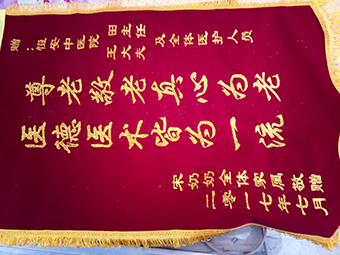 赠：恒安中医院
田主任
王大夫
及全体医护人员
尊老敬老真心为老
医德医术皆为一流
宋奶奶全体家属敬赠
二零一七年七月